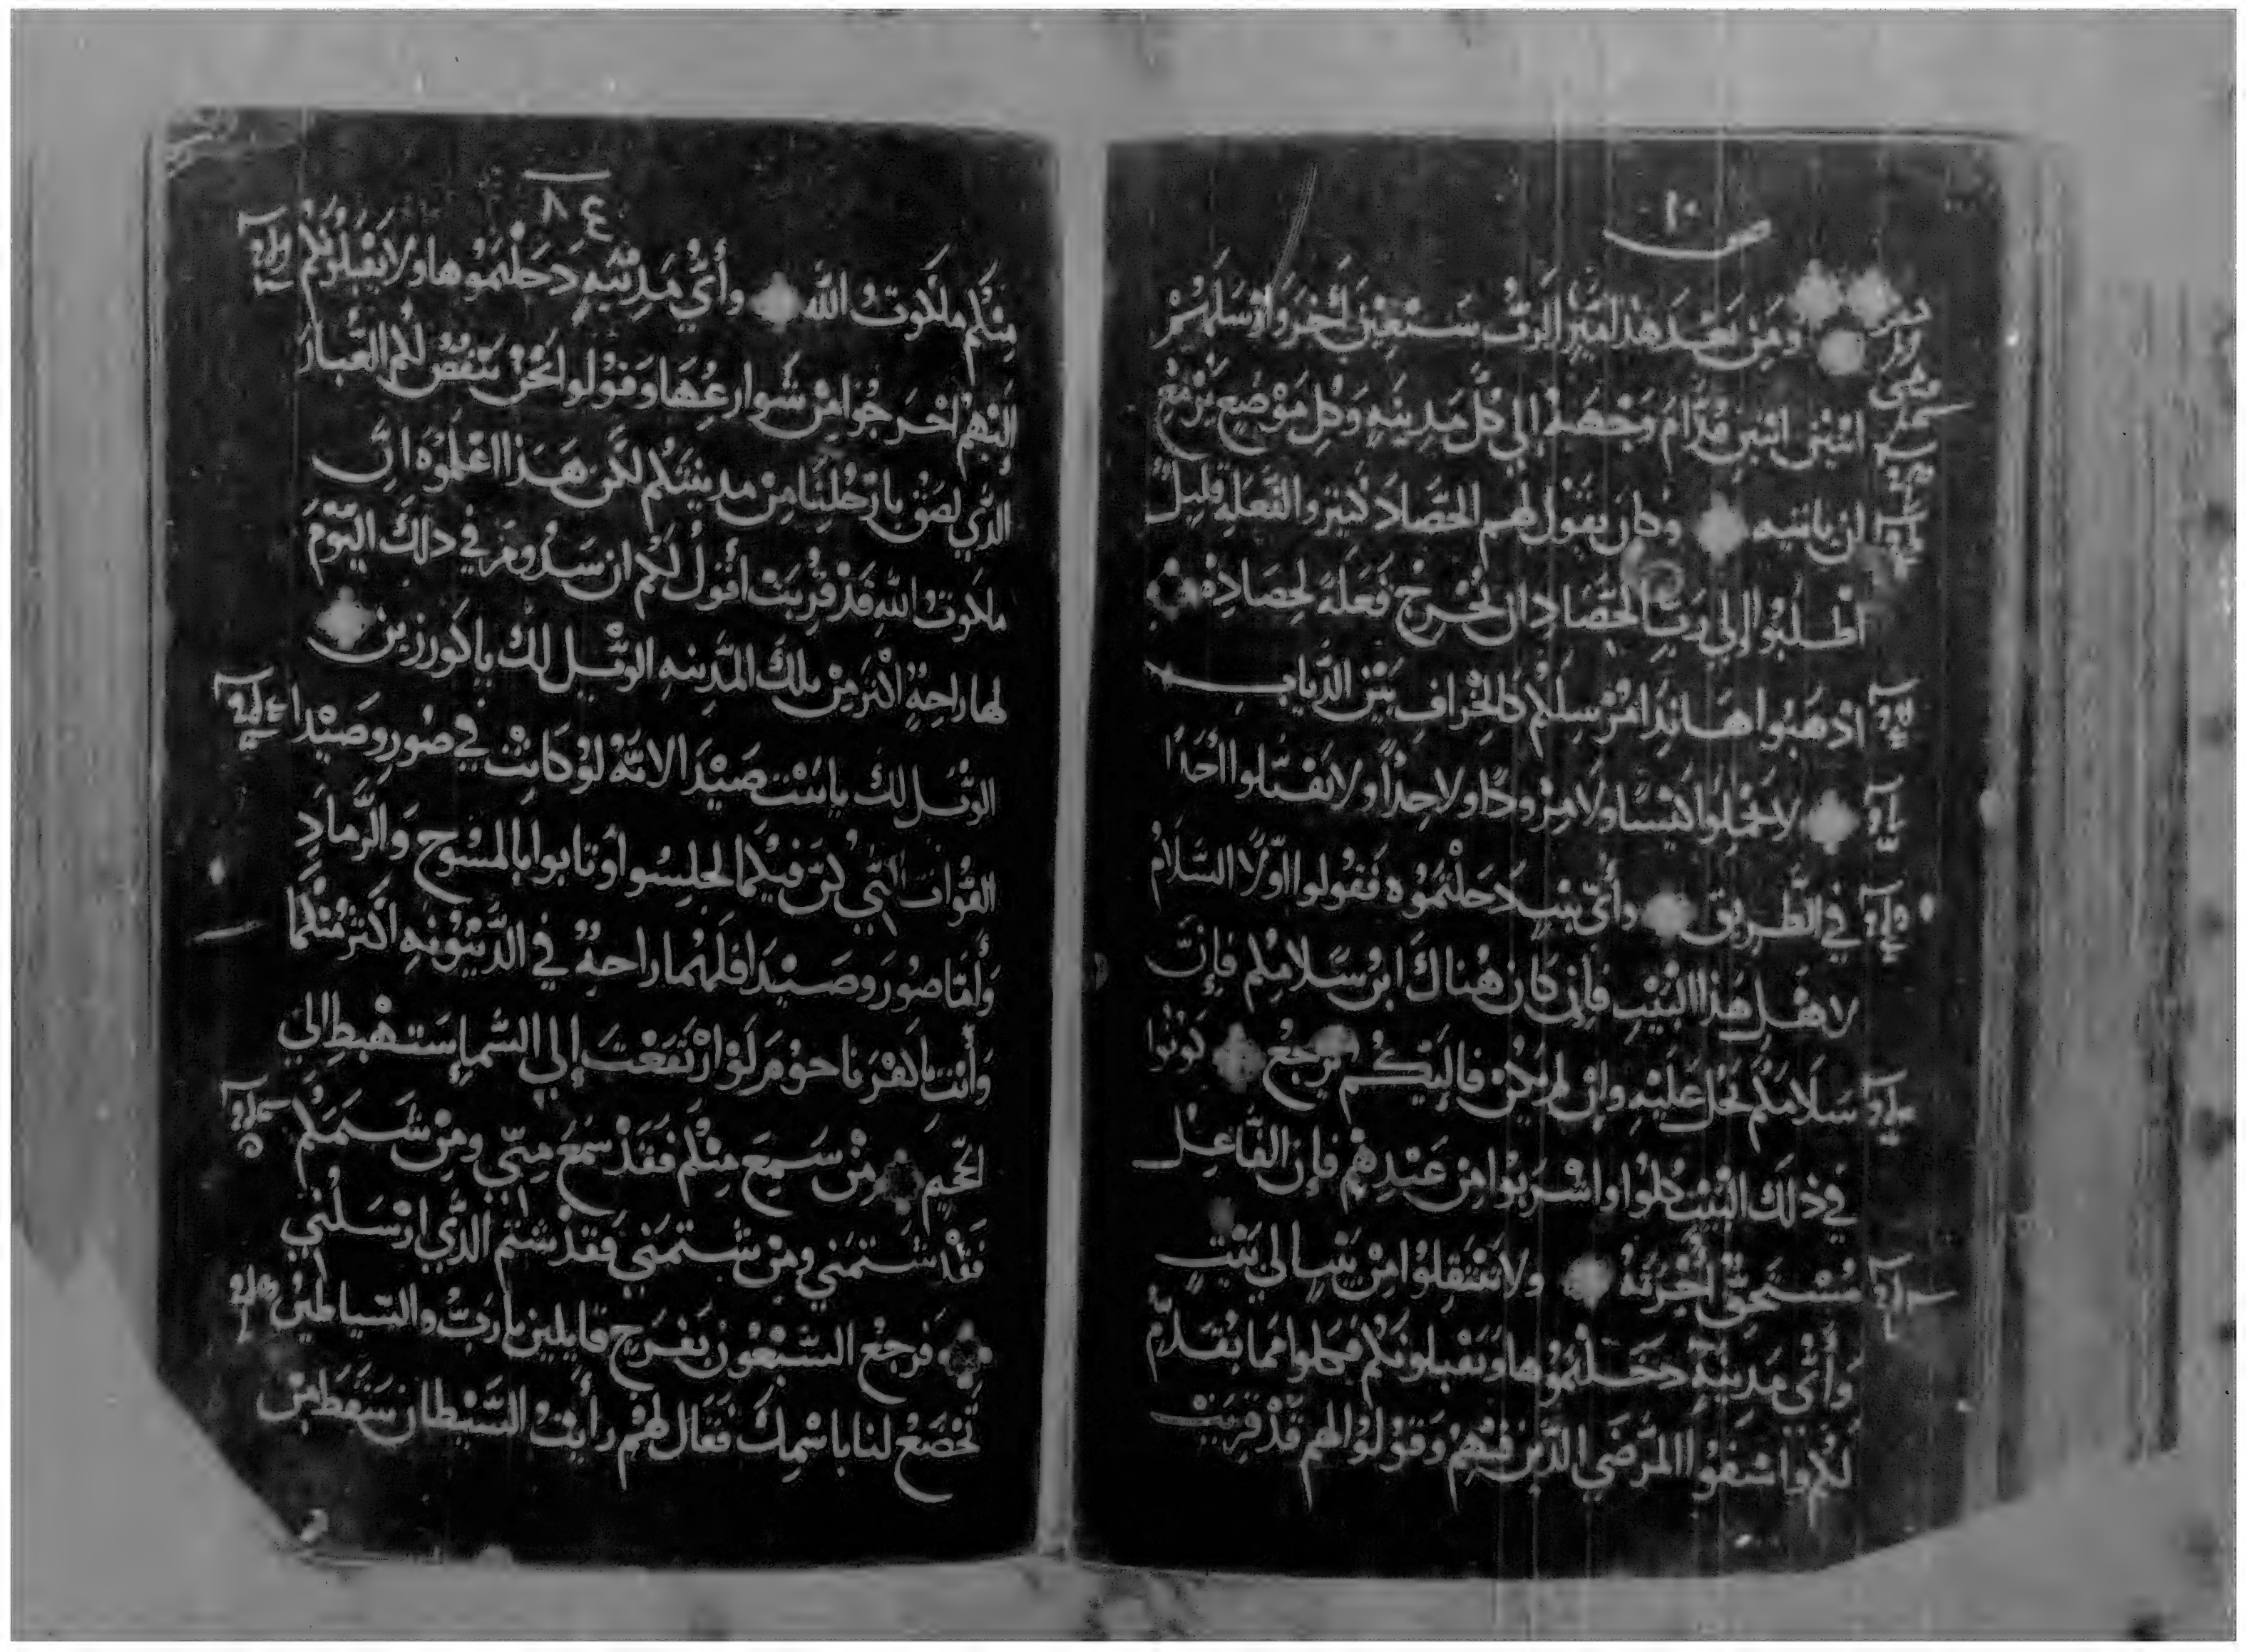 ١٠
ومن بعد هذا ميز الرب سبعين اخر وارسلهم
اثنين اثنين قدام وجهه إلي كل مدينه وكل موضع يزمع
ان ياتيه وكان يقول لهم الحصاد كثير والفعلة قليل
اطلبوا إلي رب الحصاد ان يخرج فعلة لحصاده
اذهبوا هانذا مرسلكم كالخراف بين الدياب
لا تحملوا كيسا ولا مزودا ولا حداً ولا تقبلوا احدا
في الطريق وأي بيت دخلتموه فقولوا اولا السلام
لاهل هذا البيت فإن كان هناك ابن سلامكم فإن
سلامكم يحل عليه وإن لم يكن فإليكم يرجع كونوا
في ذلك البيت كلوا واشربوا من عندهم فإن الفاعل
مستحق أجرته ولا تنتقلوا من بيت إلى بيت
وأي مدينة دخلتموها ويقبلونكم فكلوا مما يقدم
لكم واشفوا المرضي الذين فيهم وقولوا لهم قد قربت
٨٤
منكم ملكوت الله وأي مدينه دخلتموها ولا يقبلونكم
اليهم اخرجوا من شوارعها وقولوا نحن ننفض لكم الغبار
الذي لصق بارجلنا من مدينتكم لكن هذا اعلموه ان
ملكوت الله قد قربت أقول لكم ان سدوم في ذلك اليوم
لها راحة اكثر من تلك المدينه الويل لك يا كورزين
الويل لك يا بيت صيدا لانه لو كانت في صور وصيدا
القوات التي كن فيكما لجلسوا وتابوا بالمسوح والرماد
وأما صور وصيدا فلهما راحة في الدينونه اكثر منكما
وأنت يا كفرناحوم لو ارتفعت إلي السما ستهبط الي
الجحيم من سمع منكم فقد سمع مني ومن شتمكم
فقد شتمني ومن شتمني فقد شتم الذي ارسلني
فرجع السبعون بفرح قايلين يا رب والشياطين
تخضع لنا باسمك فقال لهم رأيت الشيطان سقط من